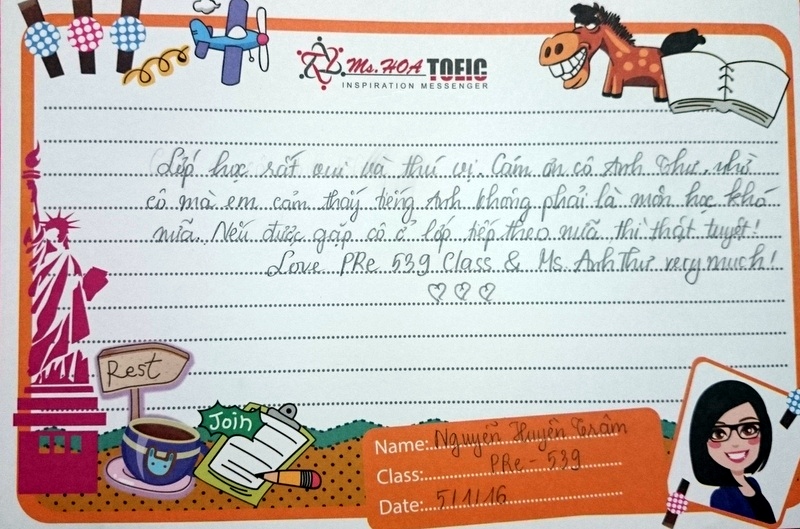 Ms.HOA TOEIC
INSPIRATION MESSENGER
Lớp học rất vui và thú vị. Cám ơn cô Anh Thư, nhờ
cô mà em cảm thấy tiếng Anh không phải là môn học khó
nữa. Nếu được gặp cô ở lớp tiếp theo nữa thì thật tuyệt!
Love PRe 539 Class & Ms. Anh Thư very much!
Rest
Join
Name: Nguyễn Huyền Trâm
Class: PRe - 539
Date: 5/1/16